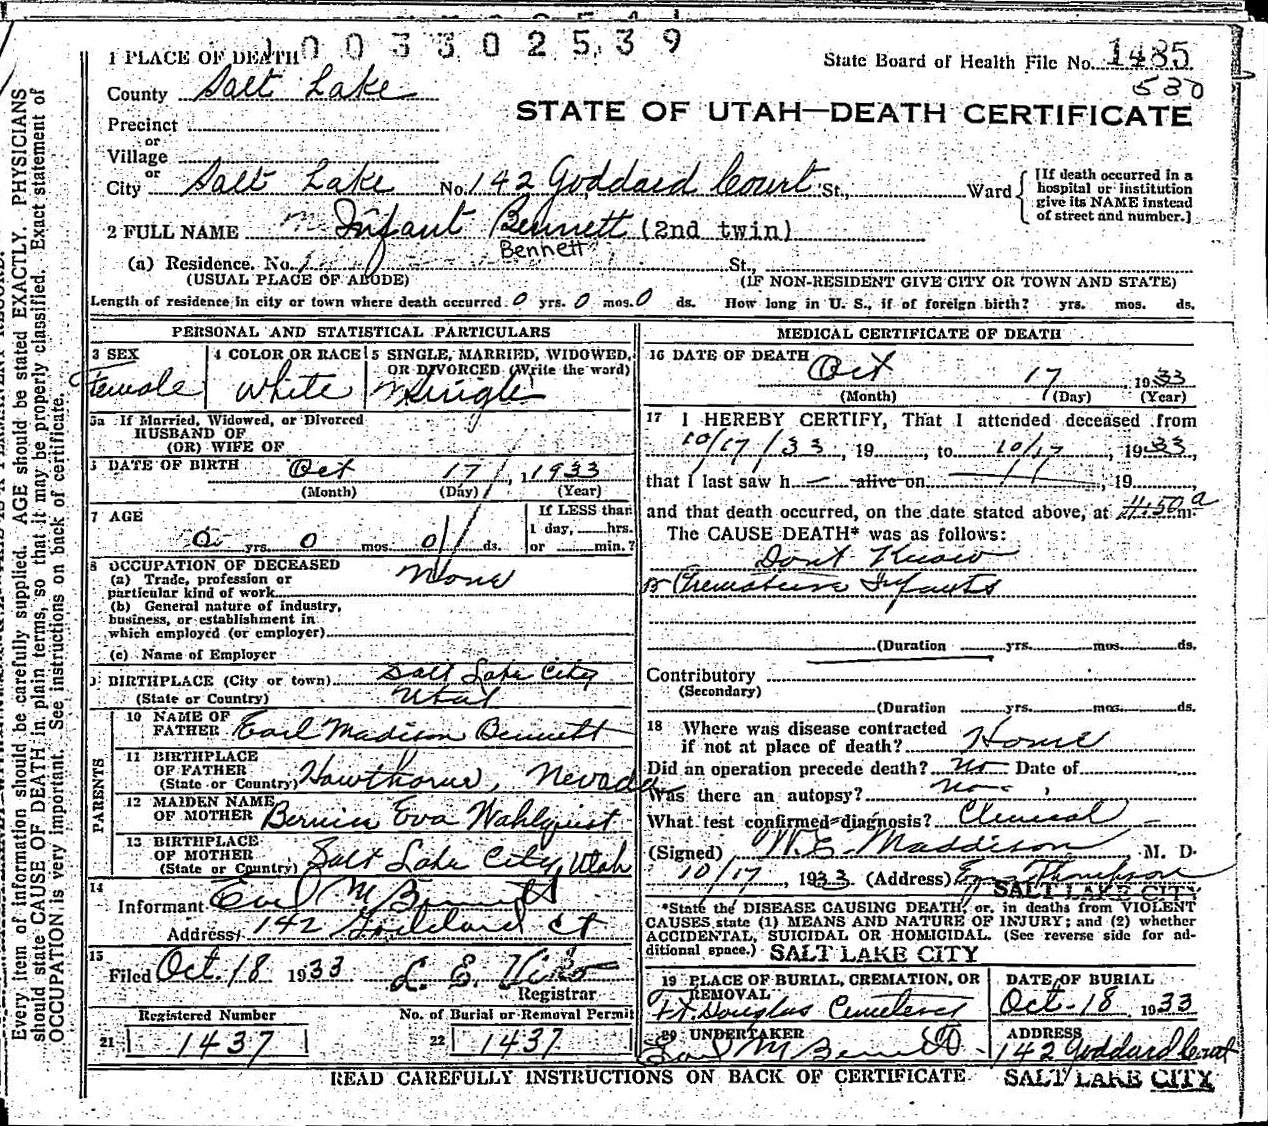 1003302539
1 PLACE OF DEATH
State Board of Health File No. 1485
530
County Salt Lake
STATE OF UTAH—DEATH CERTIFICATE
Precinct
or
Village
or
City Salt Lake No. 142 Goddard Court St., Ward
[If death occurred in a
hospital or institution
give its NAME instead
of street and number.]
2 FULL NAME Infant Bennett (2nd twin)
Bennett
(a) Residence. No. St.,
(USUAL PLACE OF ABODE) (IF NON-RESIDENT GIVE CITY OR TOWN AND STATE)
Length of residence in city or town where death occurred 0 yrs. 0 mos. 0 ds. How long in U. S., if of foreign birth? yrs. mos. ds.
PERSONAL AND STATISTICAL PARTICULARS
3 SEX
Female
4 COLOR OR RACE
White
5 SINGLE, MARRIED, WIDOWED,
OR DIVORCED (Write the word)
Single
5a If Married, Widowed, or Divorced
HUSBAND OF
(OR) WIFE OF
DATE OF BIRTH Oct 17, 1933
(Month) (Day) (Year)
7 AGE
0 yrs. 0 mos. 0 ds.
If LESS than
1 day, hrs.
or min.?
8 OCCUPATION OF DECEASED
(a) Trade, profession or
particular kind of work None
(b) General nature of industry,
business, or establishment in
which employed (or employer)
(c) Name of Employer
BIRTHPLACE (City or town) Salt Lake City
(State or Country) Utah
PARENTS
10 NAME OF
FATHER Earl Madison Bennett
11 BIRTHPLACE
OF FATHER
(State or Country) Hawthorne, Nevada
12 MAIDEN NAME
OF MOTHER Eva Wahlquist
13 BIRTHPLACE
OF MOTHER
(State or Country) Salt Lake City, Utah
14
Informant Earl M Bennett
Address 142 Goddard Ct
15
Filed Oct. 18 1933
Registrar
Registered Number
21 1437
No. of Burial or Removal Permit
22 1437
MEDICAL CERTIFICATE OF DEATH
16 DATE OF DEATH Oct 17 1933
(Month) (Day) (Year)
17 I HEREBY CERTIFY, That I attended deceased from
10/17/33, 19 , to 10/17, 1933,
that I last saw h alive on , 19 ,
and that death occurred, on the date stated above, at 11:50 a m.
The CAUSE DEATH* was as follows:
Dont Know
Premature Infants
(Duration yrs. mos. ds.
Contributory
(Secondary)
(Duration yrs. mos. ds.
18 Where was disease contracted
if not at place of death? Home
Did an operation precede death? No Date of
Was there an autopsy? No
What test confirmed diagnosis? Clinical
(Signed) W. E. Maddison M. D.
10/17, 1933 (Address)
SALT LAKE CITY
*State the DISEASE CAUSING DEATH, or, in deaths from VIOLENT
CAUSES state (1) MEANS AND NATURE OF INJURY; and (2) whether
ACCIDENTAL, SUICIDAL OR HOMICIDAL. (See reverse side for ad-
ditional space.) SALT LAKE CITY
19 PLACE OF BURIAL, CREMATION, OR
REMOVAL
Ft. Douglas Cemetery
DATE OF BURIAL
Oct-18 1933
20 UNDERTAKER
Earl M Bennett
ADDRESS
142 Goddard Court
READ CAREFULLY INSTRUCTIONS ON BACK OF CERTIFICATE SALT LAKE CITY
Every item of information should be carefully supplied. AGE should be stated EXACTLY. PHYSICIANS
should state CAUSE OF DEATH in plain terms, so that it may be properly classified. Exact statement of
OCCUPATION is very important. See instructions on back of certificate.